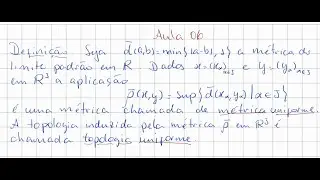 Aula 06
Definição. Seja d̄(a,b)=min{|a-b|,1} a métrica do
limite padrão em R. Dados x=(xα)α∈J e y=(yα)α∈J
em R^J a aplicação
ρ̄(x,y) = sup{d̄(xα,yα) | α∈J}
é uma métrica chamada de métrica uniforme.
A topologia induzida pela métrica ρ̄ em R^J é
chamada topologia uniforme